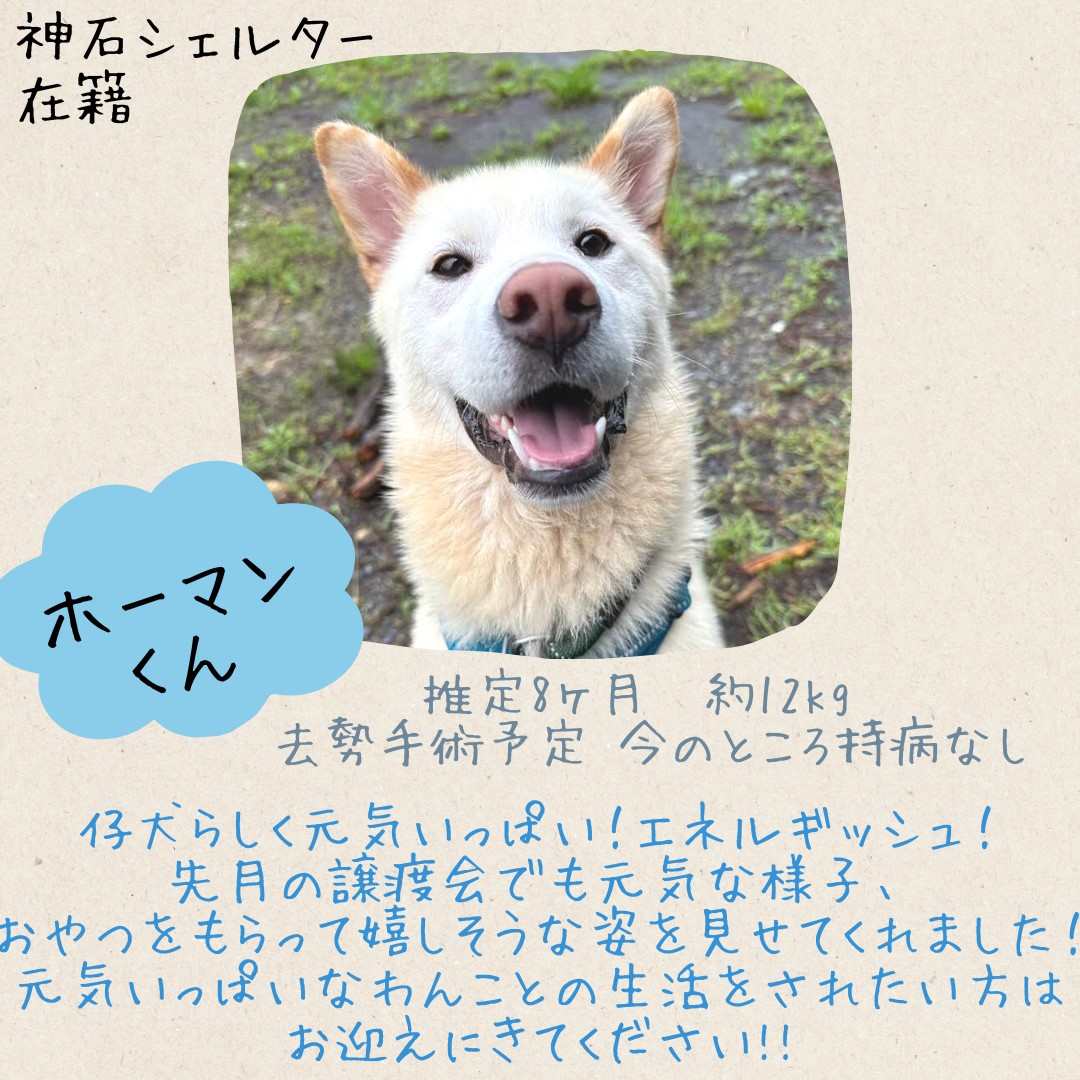 神石シェルター
在籍
ホーマン
くん
推定8ヶ月 約12kg
去勢手術予定 今のところ持病なし
仔犬らしく元気いっぱい!エネルギッシュ!
先月の譲渡会でも元気な様子、
おやつをもらって嬉しそうな姿を見せてくれました!
元気いっぱいなわんことの生活をされたい方は
お迎えにきてください!!